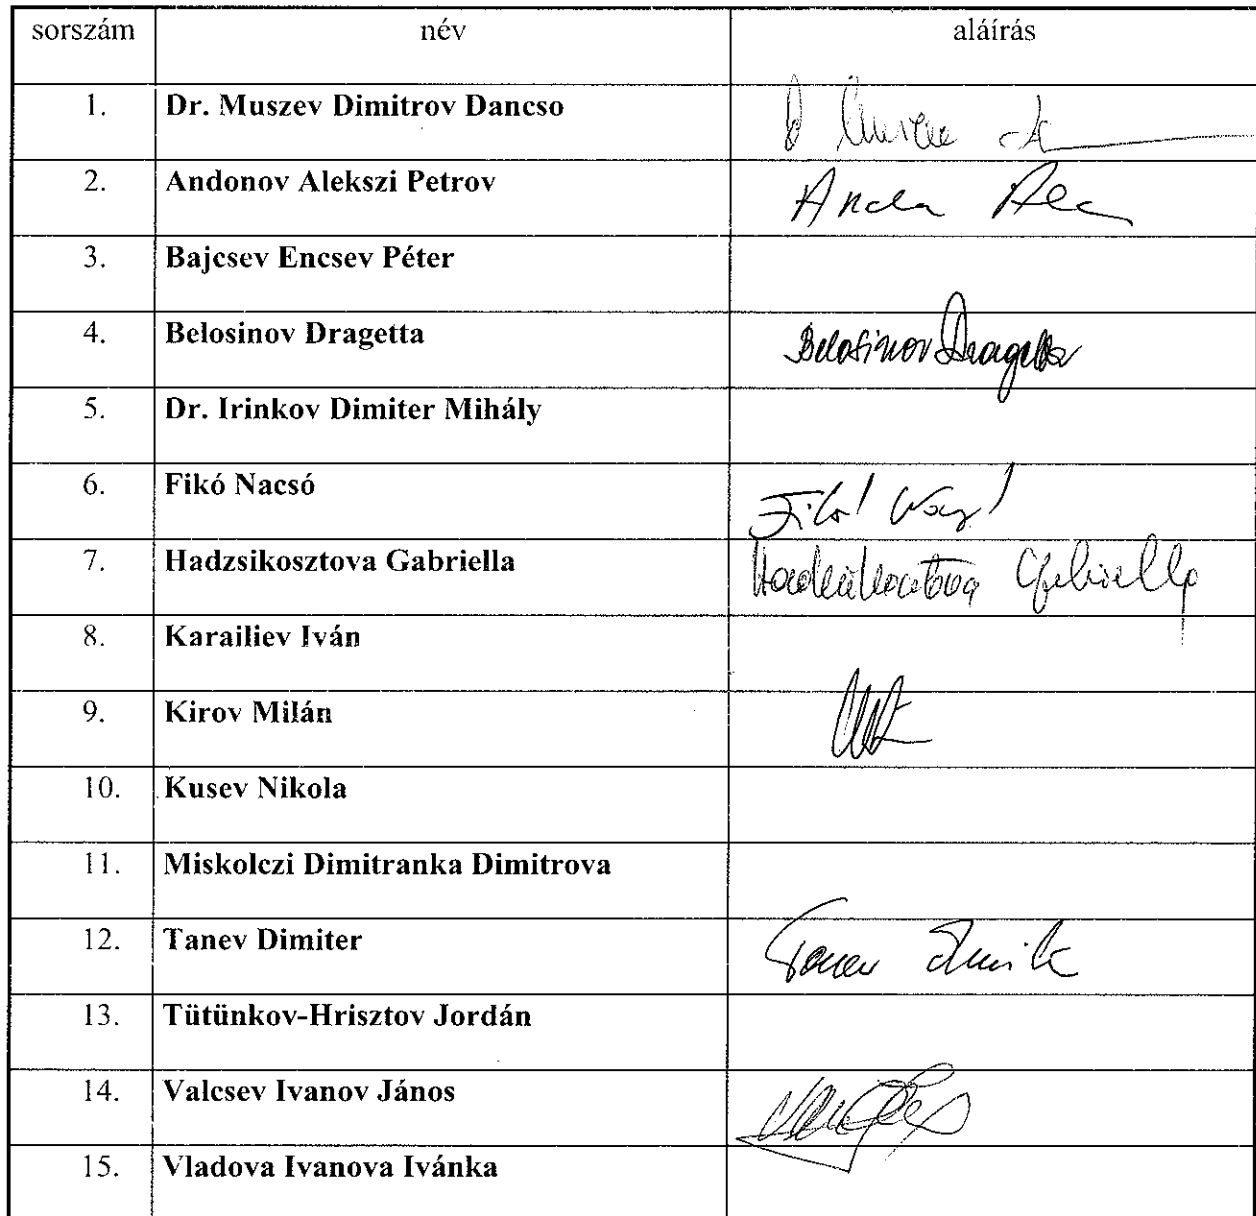 sorszám név aláírás
1. Dr. Muszev Dimitrov Dancso
2. Andonov Alekszi Petrov
3. Bajcsev Encsev Péter
4. Belosinov Dragetta Belosinov Dragetta
5. Dr. Irinkov Dimiter Mihály
6. Fikó Nacsó Fikó
7. Hadzsikosztova Gabriella Hadzsikosztova Gabriella
8. Karailiev Iván
9. Kirov Milán
10. Kusev Nikola
11. Miskolczi Dimitranka Dimitrova
12. Tanev Dimiter Tanev
13. Tütünkov-Hrisztov Jordán
14. Valcsev Ivanov János
15. Vladova Ivanova Ivánka